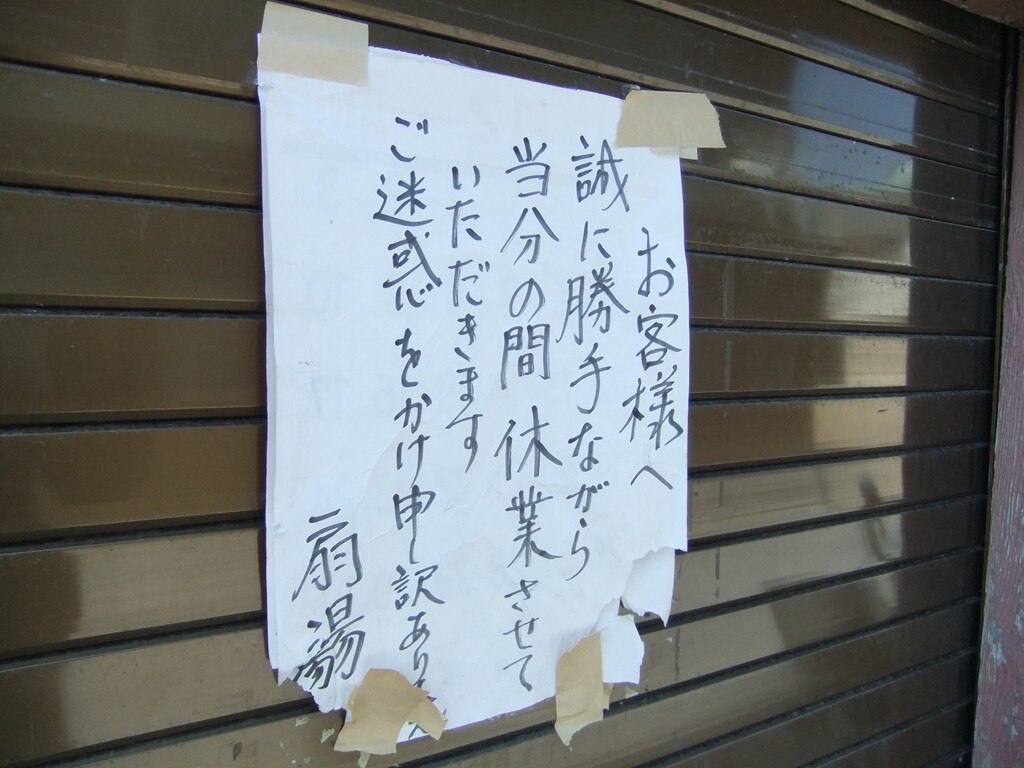 お客様へ
誠に勝手ながら
当分の間 休業させて
いただきます
ご迷惑をかけ申し訳ありません
扇湯